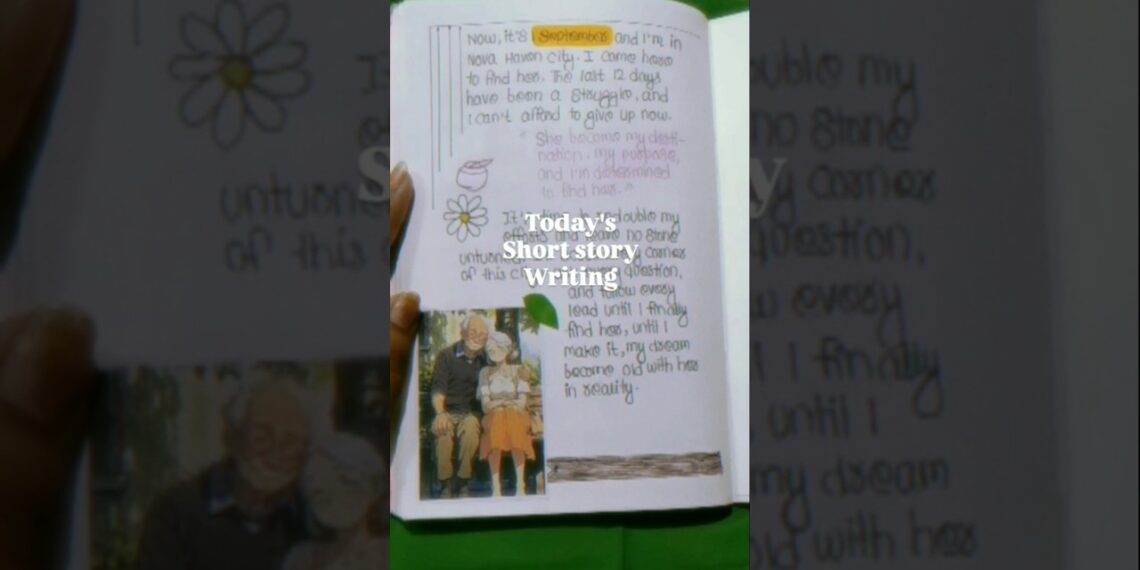 Now, it's September and I'm in
Nova Haven City. I came here
to find her. The last 12 days
have been a struggle, and
I can't afford to give up now.
" She become my desti-
nation, my purpose,
and I'm determined
to find her."
It's time to redouble my
efforts and leave no stone
untuoned, corner
of this question,
and follow every
lead until I finally
find her, until I
make it, my dream
become old with her
in reality.
Today's
Short story
Writing